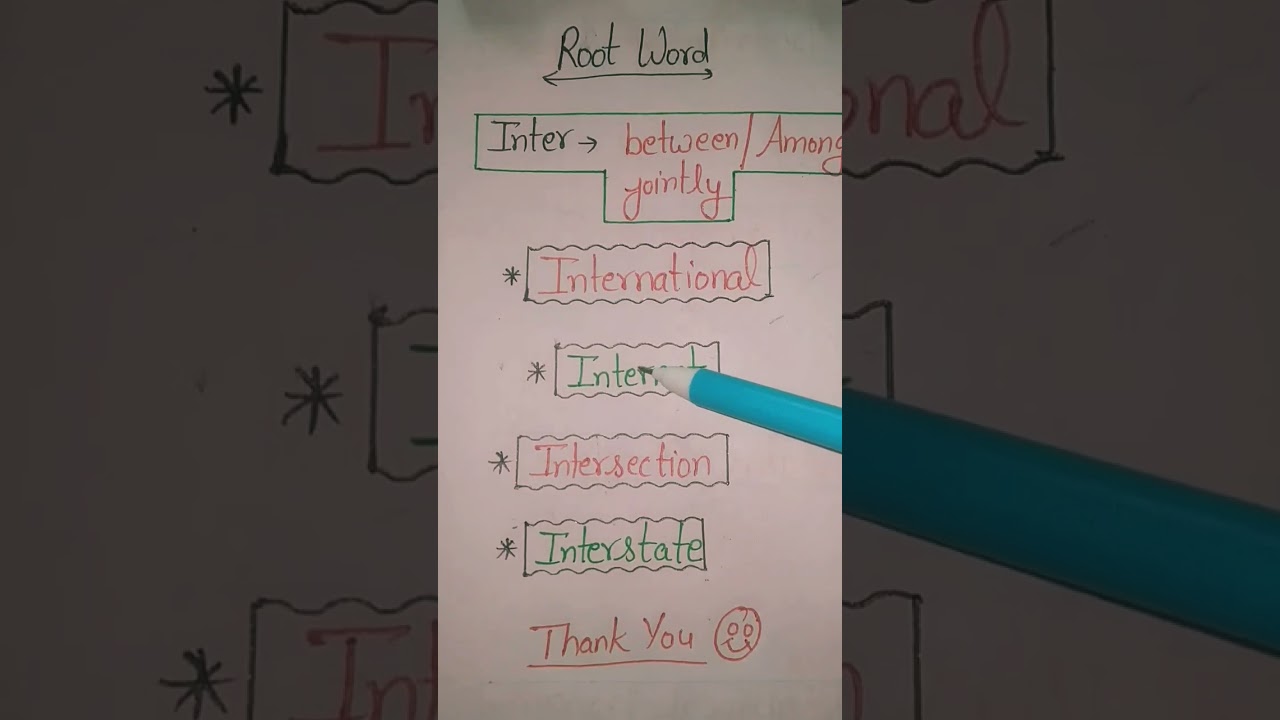 Root Word
Inter → between/Among
jointly
* International
* Internet
* Intersection
* Interstate
Thank You